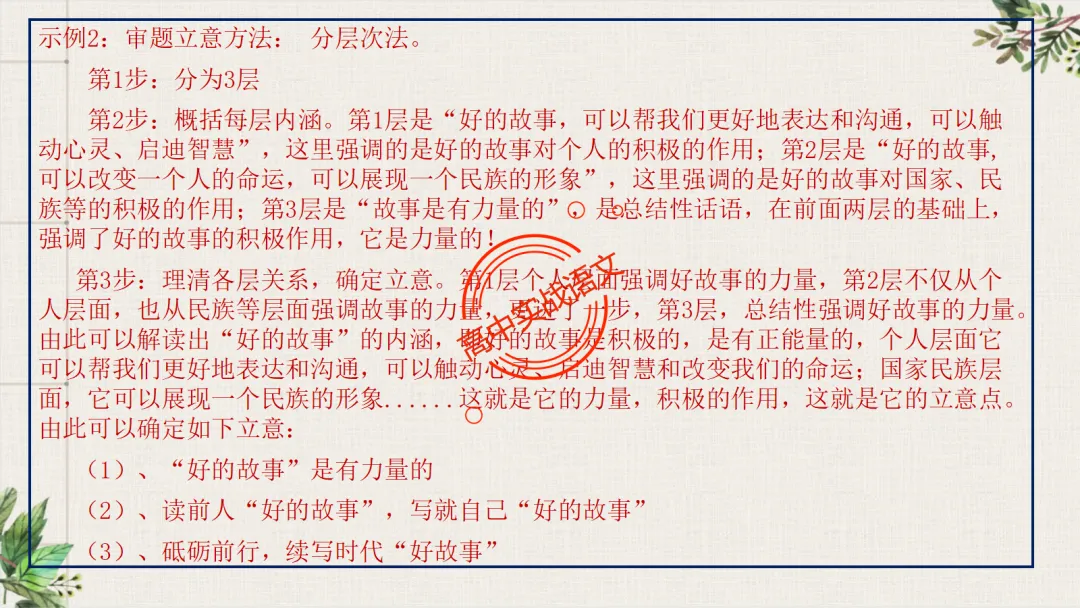 示例2：审题立意方法： 分层次法。
第1步：分为3层
第2步：概括每层内涵。第1层是“好的故事，可以帮我们更好地表达和沟通，可以触
动心灵、启迪智慧”，这里强调的是好的故事对个人的积极的作用；第2层是“好的故事，
可以改变一个人的命运，可以展现一个民族的形象”，这里强调的是好的故事对国家、民
族等的积极的作用；第3层是“故事是有力量的”，是总结性话语，在前面两层的基础上，
强调了好的故事的积极作用，它是力量的！
第3步：理清各层关系，确定立意。第1层个人 面强调好故事的力量，第2层不仅从个
人层面，也从民族等层面强调故事的力量， 步，第3层，总结性强调好故事的力量。
由此可以解读出“好的故事”的内涵， 好的故事是积极的，是有正能量的，个人层面它
可以帮我们更好地表达和沟通，可以触动心灵、启迪智慧和改变我们的命运；国家民族层
面，它可以展现一个民族的形象......这就是它的力量，积极的作用，这就是它的立意点。
由此可以确定如下立意：
（1）、“好的故事”是有力量的
（2）、读前人“好的故事”，写就自己“好的故事”
（3）、砥砺前行，续写时代“好故事”
高中实战语文